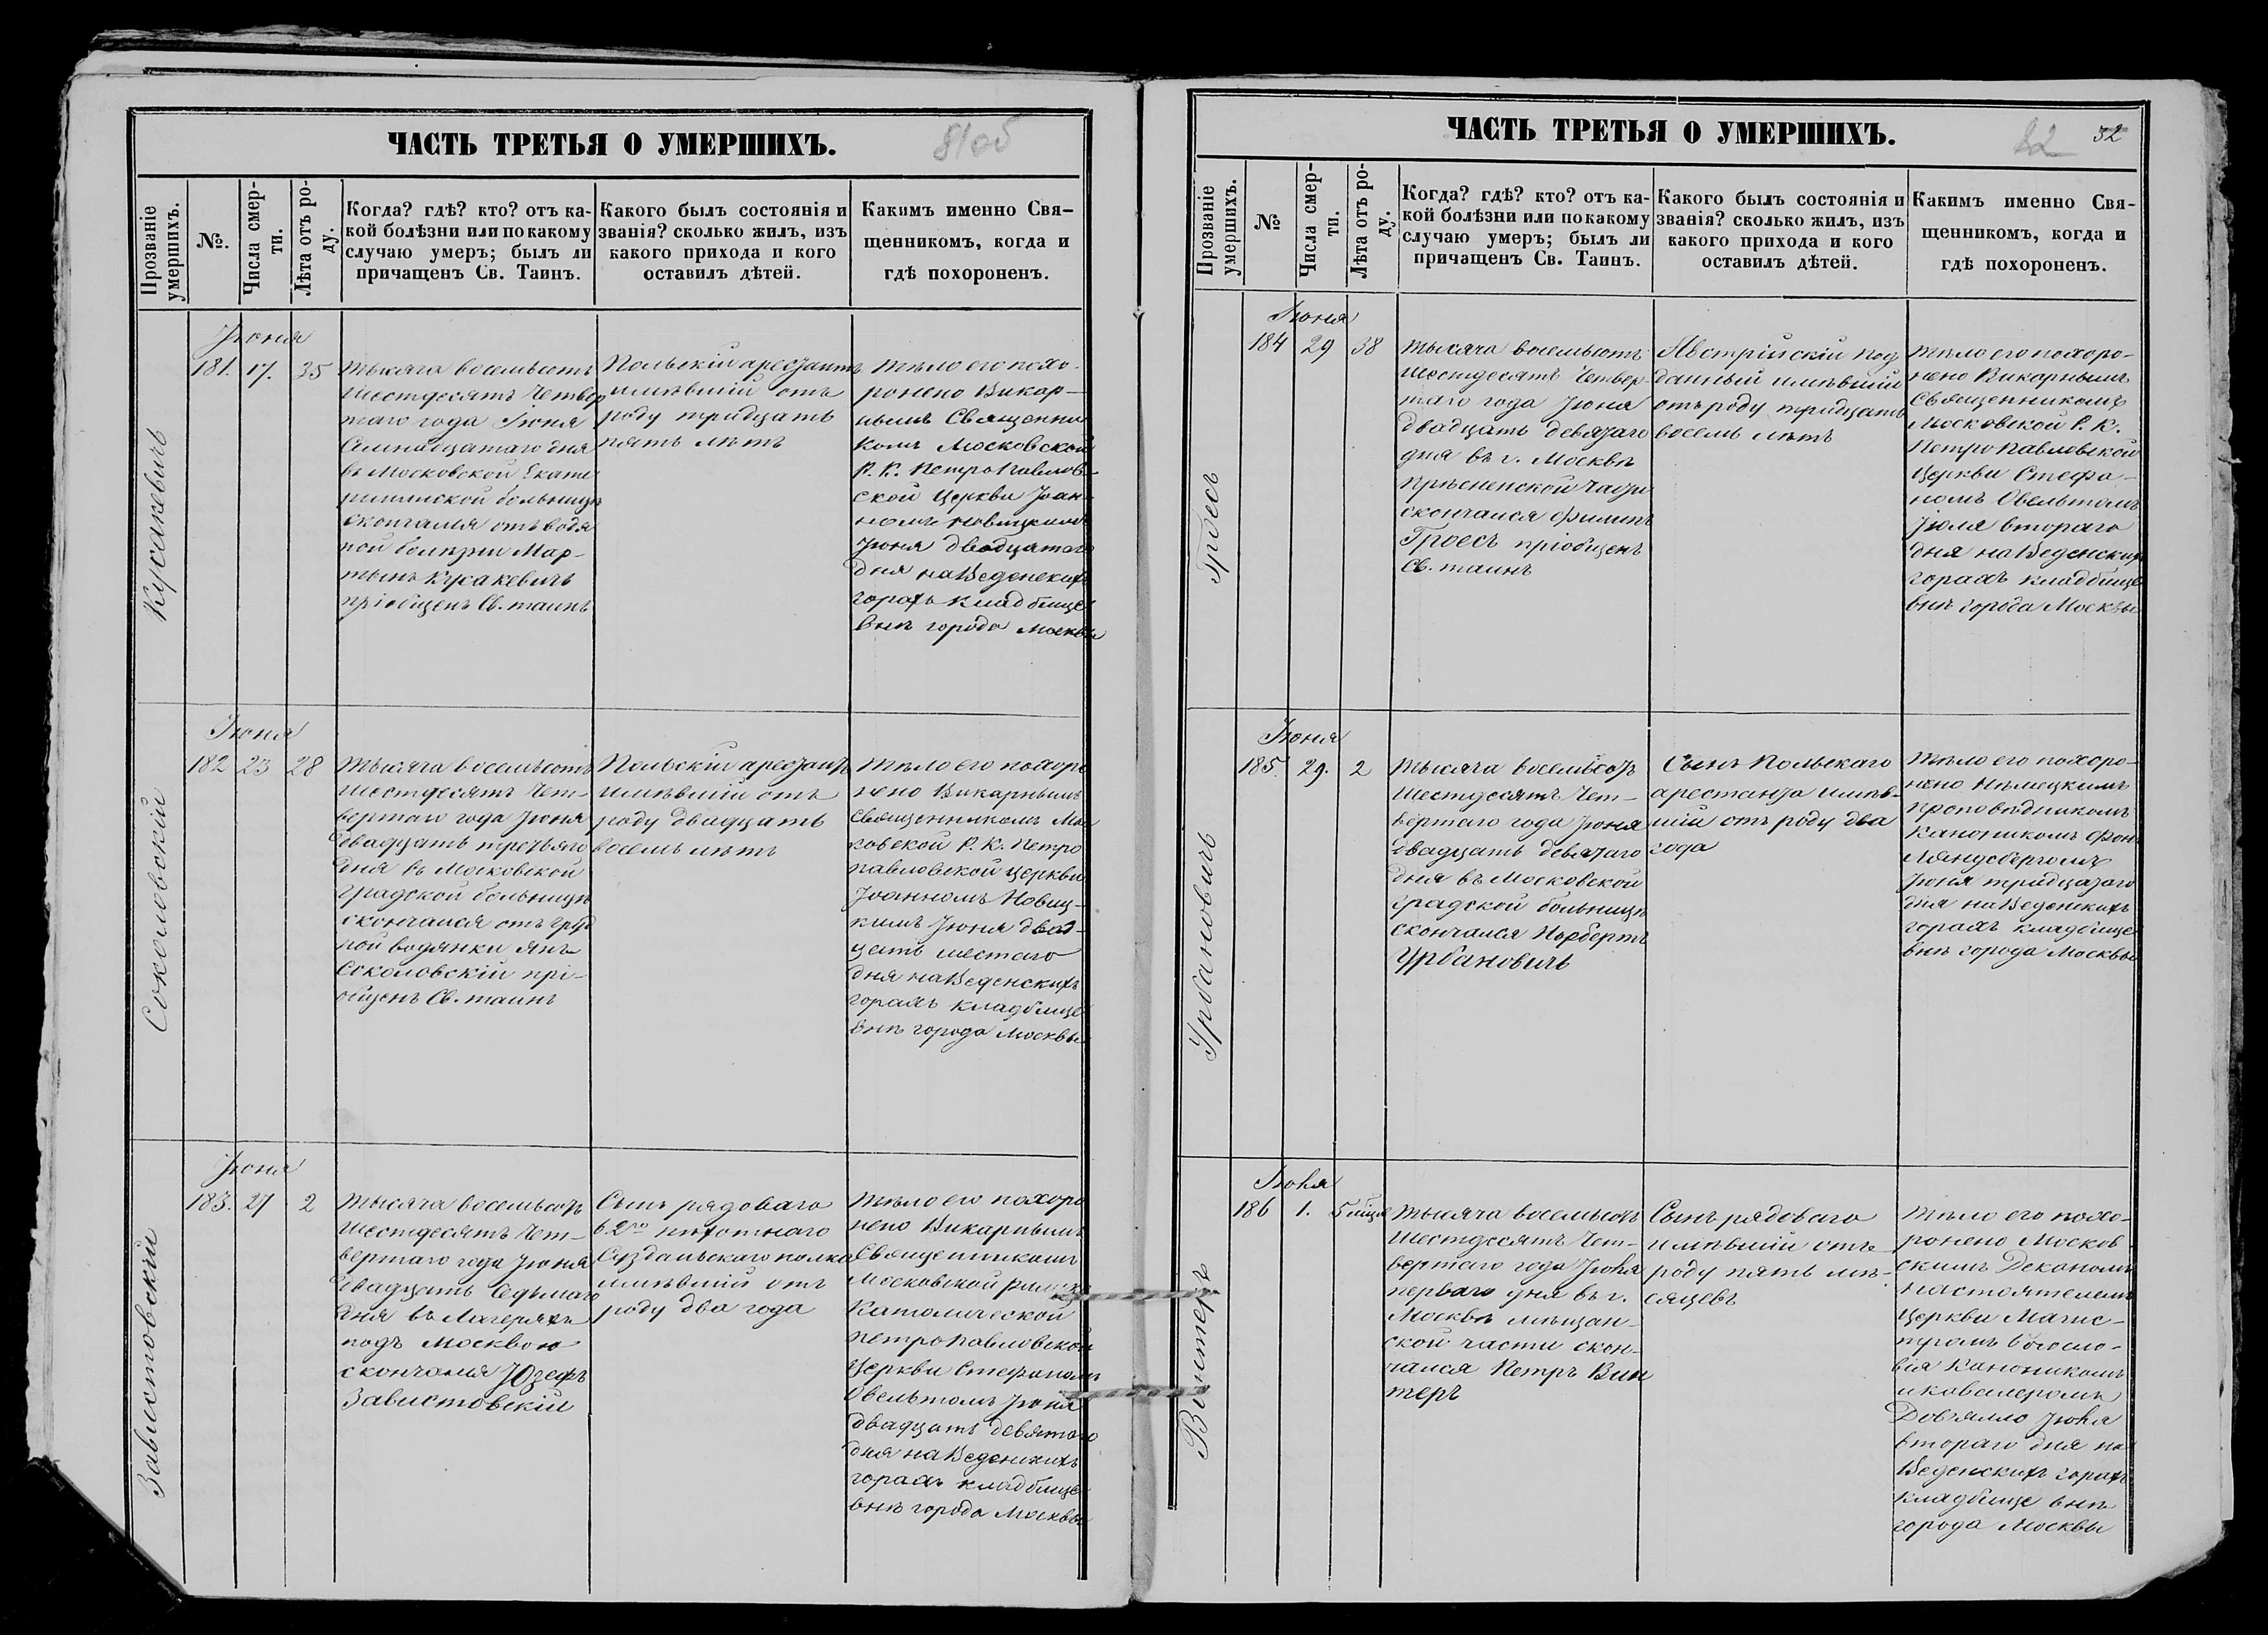 ЧАСТЬ ТРЕТЬЯ О УМЕРШИХЪ.
81об
Прозваніе умершихъ.
№.
Числа смер-
ти.
Лѣта отъ ро-
ду.
Когда? гдѣ? кто? отъ ка-
кой болѣзни или по какому
случаю умеръ; былъ ли
причащенъ Св. Таинъ.
Какого былъ состоянія и
званія? сколько жилъ, изъ
какого прихода и кого
оставилъ дѣтей.
Какимъ именно Свя-
щенникомъ, когда и
гдѣ похороненъ.
Кусакевичъ
Іюня
181. 17. 35
Тысяча восемьсотъ
шестдесятъ четвер
таго года Іюня
Семнадцатаго дня
въ Московской Екате
рининской больницѣ
скончался отъ водя
ной болѣзни Мар-
тынъ Кусакевичъ
пріобщенъ Св. таинъ
Польскій арестантъ
имѣвшій отъ
роду тридцать
пять лѣтъ
Тѣло его похо-
ронено Викар-
нымъ Священни
комъ Московской
Р. К. Петропавлов-
ской Церкви Іоан-
номъ Новицкимъ
Іюня двадцатаго
дня на Веденскихъ
горахъ кладбище
внѣ города Москвы
Соколовскій
Іюня
182 23 28
Тысяча восемьсотъ
шестдесятъ чет-
вертаго года Іюня
двадцать третьяго
дня въ Московской
градской больницѣ
скончался отъ груд
ной водянки Янъ
Соколовскій прі-
общенъ Св. таинъ
Польскій арестантъ
имѣвшій отъ
роду двадцать
восемь лѣтъ
Тѣло его похоро
нено Викарнымъ
Священникомъ Мос
ковской Р. К. Петро
павловской Церкви
Іоанномъ Новиц-
кимъ Іюня двад-
цать шестаго
дня на Веденскихъ
горахъ кладбище
внѣ города Москвы
Зависто­вскій
Іюня
183. 27 2
Тысяча восемьсотъ
шестдесятъ чет-
вертаго года Іюня
двадцать седьмаго
дня въ Лагеряхъ
подъ Москвою
скончался Юзефъ
Завистовскій
Сынъ рядоваго
62го пѣхотнаго
Суздальскаго полка
имѣвшій отъ
роду два года
Тѣло его похоро
нено Викарнымъ
Священникомъ
Московской Римско
Католической
Петропавловской
Церкви Стефаномъ
Овельтомъ Іюня
двадцать девятаго
дня на Веденскихъ
горахъ кладбище
внѣ города Москвы
ЧАСТЬ ТРЕТЬЯ О УМЕРШИХЪ.
82 32
Прозваніе умершихъ.
№
Числа смер-
ти.
Лѣта отъ ро-
ду.
Когда? гдѣ? кто? отъ ка-
кой болѣзни или по какому
случаю умеръ; былъ ли
причащенъ Св. Таинъ.
Какого былъ состоянія и
званія? сколько жилъ, изъ
какого прихода и кого
оставилъ дѣтей.
Какимъ именно Свя-
щенникомъ, когда и
гдѣ похороненъ.
Гроесъ
Іюня
184 29 38
Тысяча восемьсотъ
шестдесятъ четвер-
таго года Іюня
двадцать девятаго
дня въ г. Москвѣ
Прѣсненской части
скончался Филипъ
Гроесъ пріобщенъ
Св. таинъ
Австрійскій под
данный имѣвшій
отъ роду тридцать
восемь лѣтъ
Тѣло его похоро-
нено Викарнымъ
Священникомъ
Московской Р. К.
Петропавловской
Церкви Стефа-
номъ Овельтомъ
Іюля втораго
дня на Веденскихъ
горахъ кладбище
внѣ города Москвы
Урбановичъ
Іюня
185. 29. 2
Тысяча восемьсотъ
шестдесятъ чет-
вертаго года Іюня
двадцать девятаго
дня въ Московской
градской больницѣ
скончался Норбертъ
Урбановичъ
Сынъ Польскаго
арестанта имѣв-
шій отъ роду два
года
Тѣло его похоро-
нено Нѣмецкимъ
проповѣдникомъ
Каноникомъ Фонъ
Ляндсбергомъ
Іюня тридцатаго
дня на Веденскихъ
горахъ кладбище
внѣ города Москвы
Винтеръ
Іюля
186 1. 5 мѣся
Тысяча восемьсотъ
шестдесятъ чет-
вертаго года Іюля
перваго дня въ г.
Москвѣ мѣщан-
ской части скон-
чался Петръ Вин
теръ
Сынъ рядоваго
имѣвшій отъ
роду пять мѣ-
сяцевъ
Тѣло его похо-
ронено Москов
скимъ Деканомъ
настоятелемъ
Церкви Магис-
тромъ богосло-
вія Каноникомъ
и кавалеромъ
Довяллло Іюля
втораго дня на
Веденскихъ горахъ
кладбище внѣ
города Москвы